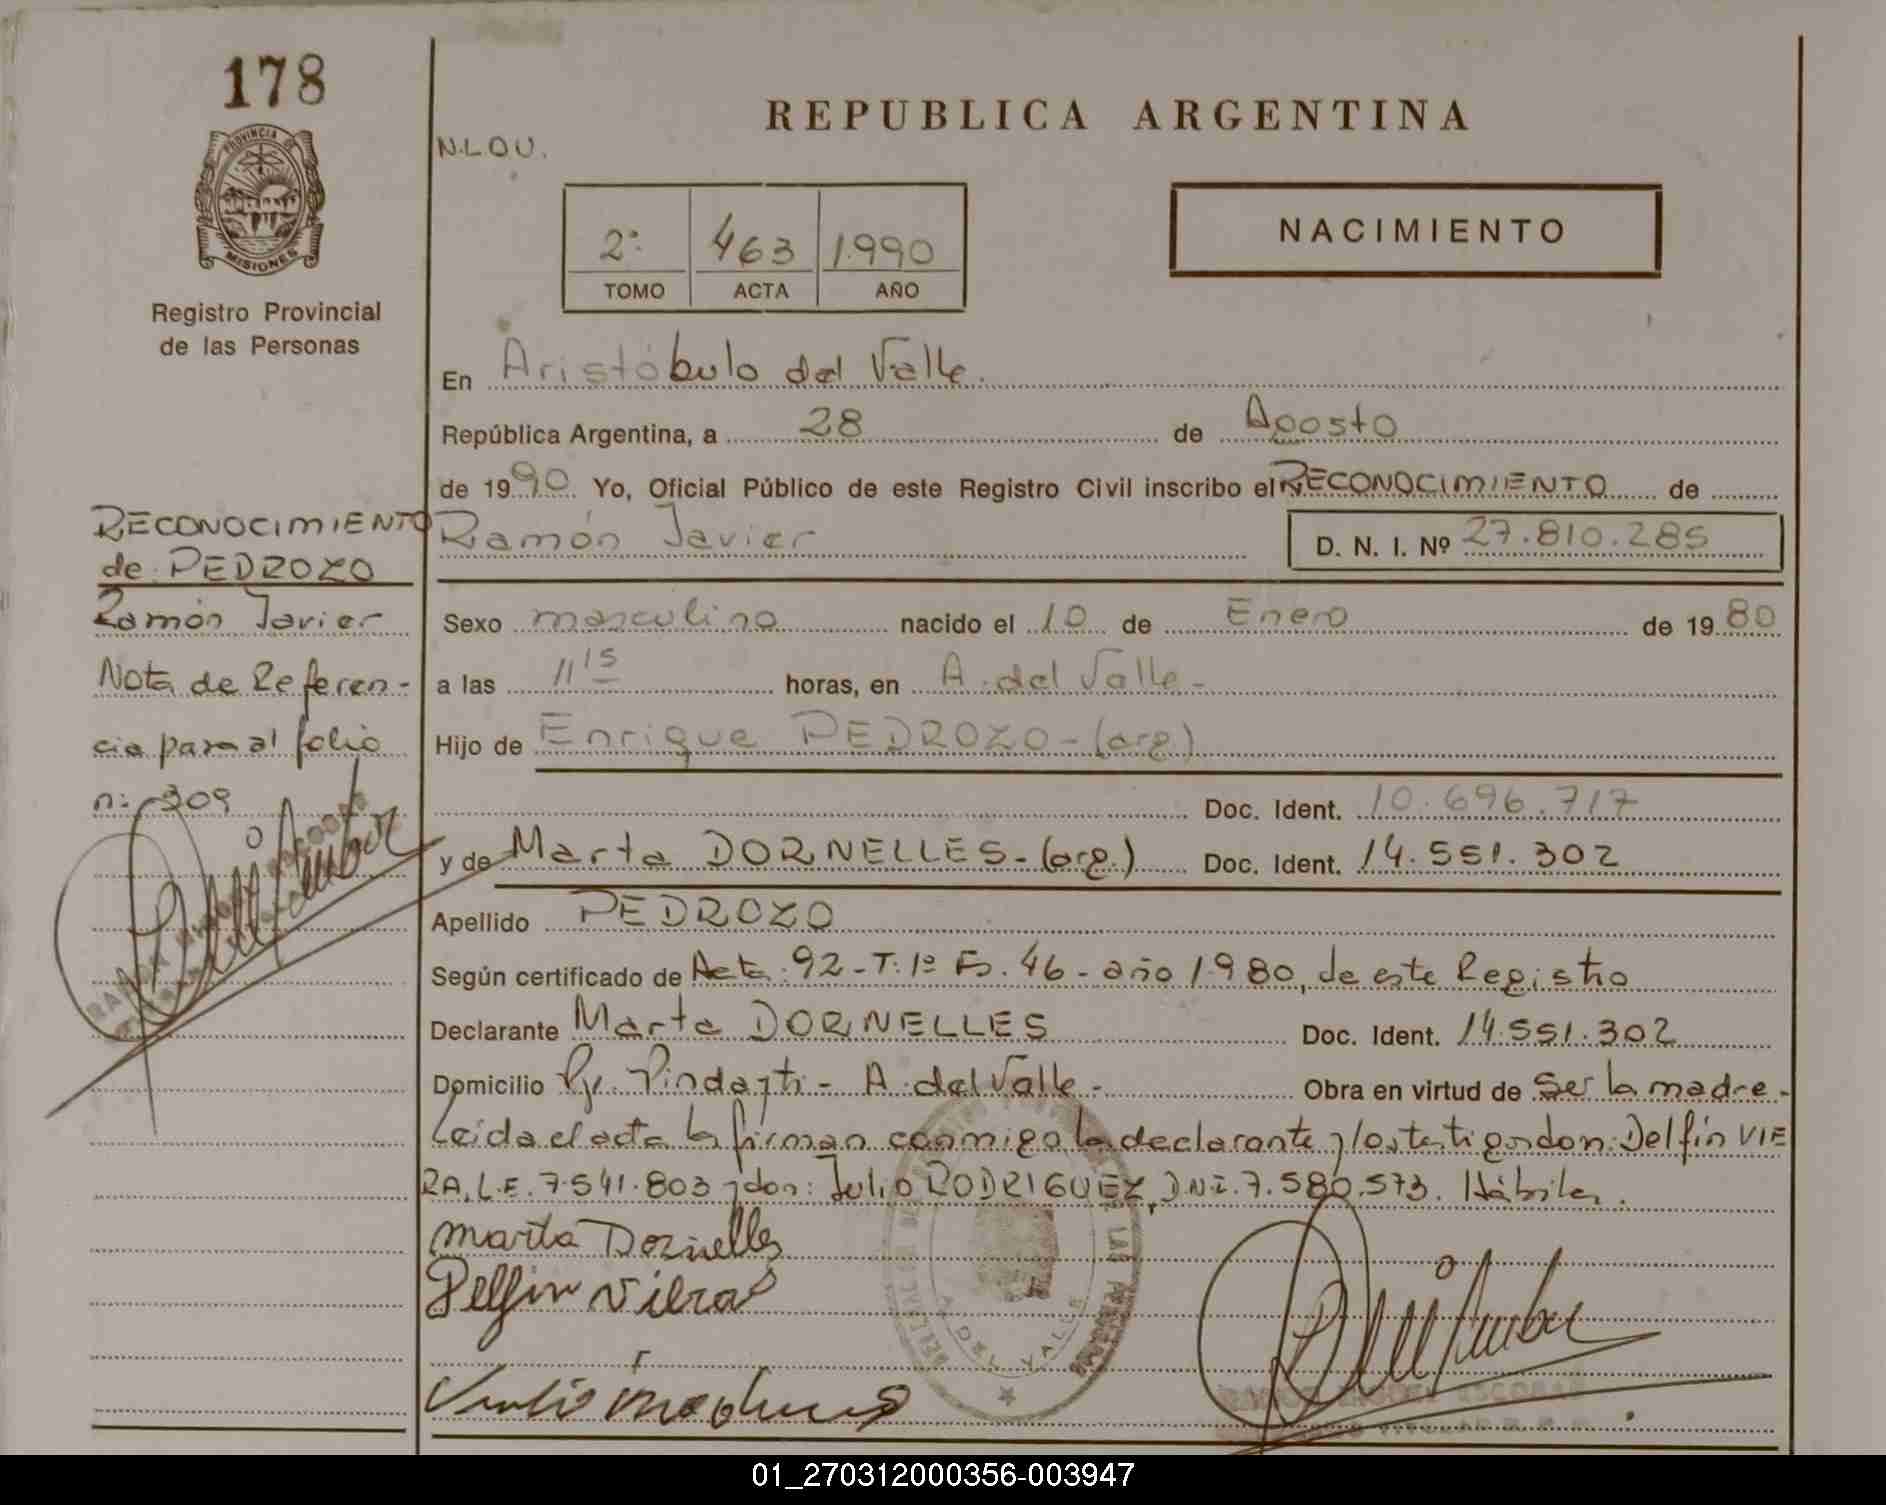 178
PROVINCIA DE
MISIONES
Registro Provincial
de las Personas
RECONOCIMIENTO
de PEDROZO
Ramón Javier
Nota de Referen-
cia para al folio
n: 309
REPUBLICA ARGENTINA
N.L.O.U.
2° 463 1.990
TOMO ACTA AÑO
NACIMIENTO
En Aristóbulo del Valle.
República Argentina, a 28 de Agosto
de 1990. Yo, Oficial Público de este Registro Civil inscribo el RECONOCIMIENTO de
Ramón Javier D. N. I. Nº 27.810.285
Sexo masculino nacido el 10 de Enero de 1980
a las 11 15 horas, en A. del Valle-
Hijo de Enrique PEDROZO-(arg)
Doc. Ident. 10.696.717
y de Marta DORNELLES-(arg.) Doc. Ident. 14.551.302
Apellido PEDROZO
Según certificado de Acta: 92-T: 1º Fo. 46-año 1.980, de este Registro
Declarante Marta DORNELLES Doc. Ident. 14.551.302
Domicilio Pje. Pindayti- A. del Valle- Obra en virtud de Ser la madre-
Leida el acta la firman conmigo la declarante y los testigos don: Delfín VIE
RA, L.E. 7.541.803 y don: Julio RODRIGUEZ, D.N.I. 7.580.573. Hábiles.
Marta Dornelles
Delfin Vieras
01_270312000356-003947